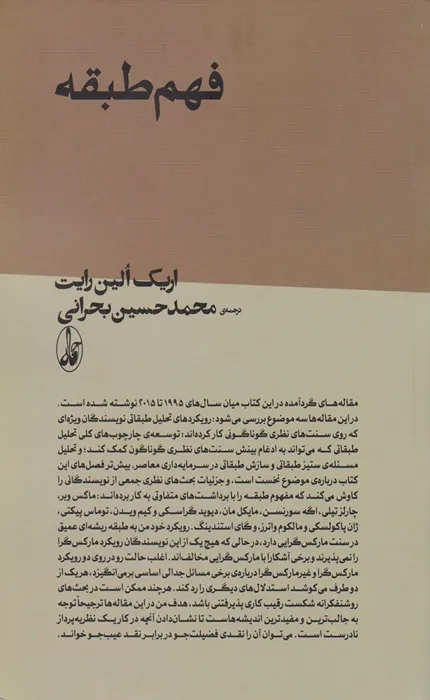 فهم طبقه
اریک اُلین رایت
ترجمه‌ی محمدحسین بحرانی
آگاه
مقاله‌های گردآمده در این کتاب میان سال‌های ۱۹۹۵ تا ۲۰۱۵ نوشته شده است.
در این مقاله‌ها سه موضوع بررسی می‌شود: رویکردهای تحلیل طبقاتی نویسندگان ویژه‌ای
که روی سنت‌های نظری گوناگونی کار کرده‌اند؛ توسعه‌ی چارچوب‌های کلی تحلیل
طبقاتی که می‌تواند به ادغام بینش سنت‌های نظری گوناگون کمک کند؛ و تحلیل
مسئله‌ی ستیز طبقاتی و سازش طبقاتی در سرمایه‌داری معاصر. بیش‌تر فصل‌های این
کتاب درباره‌ی موضوع نخست است، و جزئیات بحث‌های نظری جمعی از نویسندگانی را
کاوش می‌کند که مفهوم طبقه را با برداشت‌های متفاوتی به کار برده‌اند: ماکس وبر،
چارلز تیلی، اگه سورنسن، مایکل مان، دیوید گراسکی و کیم ویدن، توماس پیکتی،
ژان پاکولسکی و مالکوم واترز، و گای استندینگ. رویکرد خود من به طبقه ریشه‌ای عمیق
در سنت مارکس‌گرایی دارد، درحالی که هیچ یک از این نویسندگان رویکرد مارکس‌گرا
را نمی‌پذیرند و برخی آشکارا با مارکس‌گرایی مخالف‌اند. اغلب حالت رودرروی دو رویکرد
مارکس‌گرا و غیرمارکس‌گرا درباره‌ی برخی مسائل جدالی اساسی برمی‌انگیزد، هر یک از
دو طرف می‌کوشد استدلال‌های دیگری را رد کند. هرچند ممکن است در بحث‌های
روشنفکرانه شکست رقیب کاری پذیرفتنی باشد، هدف من در این مقاله‌ها ترجیحاً توجه
به جالب‌ترین و مفیدترین اندیشه‌هاست تا نشان‌دادن آنچه در کار یک نظریه‌پرداز
نادرست است. می‌توان آن را نقدی فضیلت‌جو در برابر نقد عیب‌جو خواند.